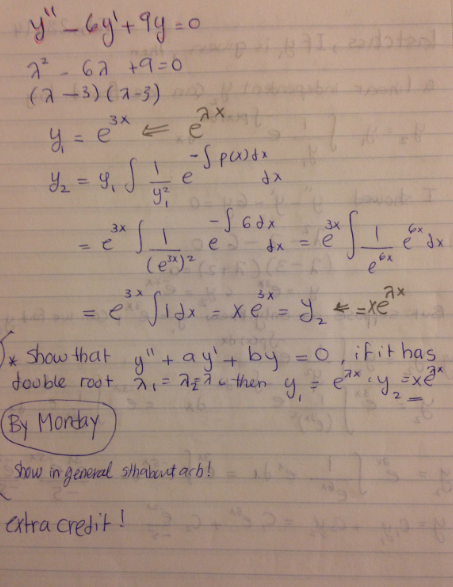 y'' - 6y' + 9y = 0
λ² - 6λ + 9 = 0
(λ - 3)(λ - 3)
y₁ = e^{3x} ⇐ e^{λx}
y₂ = y₁ ∫ 1/y₁² e^{-∫p(x)dx} dx
= e^{3x} ∫ 1/(e^{3x})² e^{-∫6dx} dx = e^{3x} ∫ 1/e^{6x} e^{6x} dx
= e^{3x} ∫ 1 dx = x e^{3x} = y₂ ⇐ = x e^{λx}
* Show that y'' + ay' + by = 0, if it has
double root λ₁ = λ₂ = λ, then y₁ = e^{λx}, y₂ = x e^{λx}
By Monday
show in general sth about a b!
extra credit!